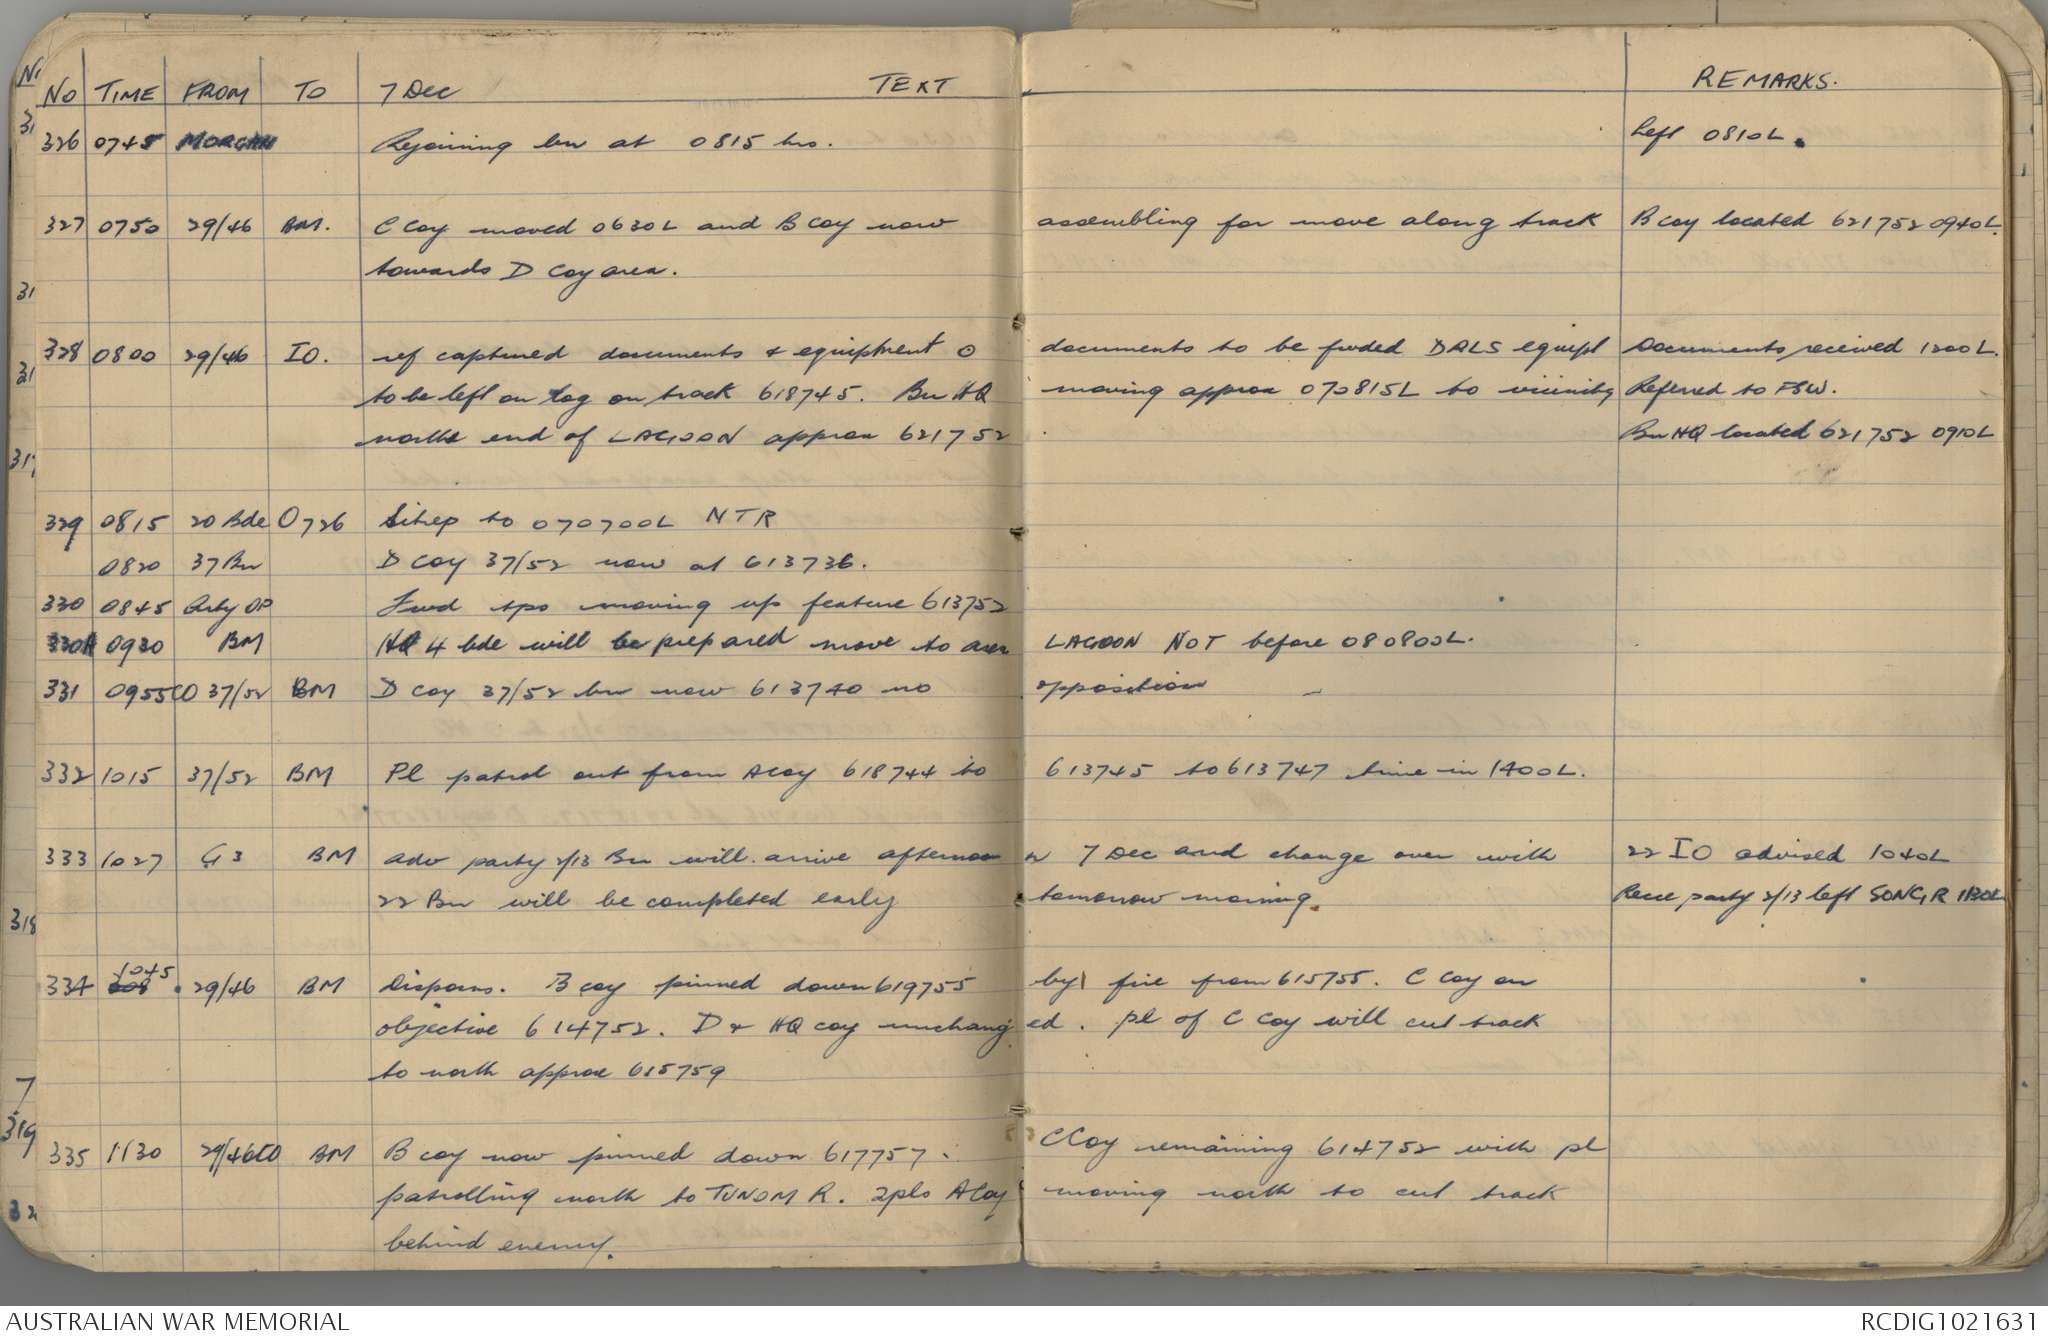 No TIME FROM TO 7 Dec TEXT REMARKS.
326 0745 MORGAN Rejoining bn at 0815 hrs. Left 0810L.
327 0750 29/46 BM. C Coy moved 0630L and B Coy now assembling for move along track B coy located 621752 0940L.
towards D Coy area.
328 0800 29/46 IO. ref captured documents & equiptment O documents to be fwded DALS equipt Documents received 1200L.
to be left on log on track 618745. Bn HQ moving approx 070815L to vicinity Referred to FSW.
north end of LAGOON approx 621752. Bn HQ located 621752 0910L
329 0815 20 Bde O726 Sitrep to 070700L NTR
0820 37 Bn D coy 37/52 now at 613736.
330 0845 Arty OP Fwd tps moving up feature 613752
330A 0930 BM HQ 4 bde will be prepared move to area LAGOON NOT before 080800L.
331 0955 CO 37/52 BM D coy 37/52 bn now 613740 no opposition
332 1015 37/52 BM Pl patrol out from A coy 618744 to 613745 to 613747 time in 1400L.
333 1027 G3 BM adv party 2/13 Bn will arrive afternoon 7 Dec and change over with 22 IO advised 1040L
22 Bn will be completed early tomorrow morning. Recce party 2/13 left SONG R 1130L
334 1045 29/46 BM Disposns. B coy pinned down 619755 by fire from 615755. C Coy on
objective 614752. D & HQ coy unchanged. pl of C Coy will cut track
to north approx 615759
335 1130 29/46 CO BM B coy now pinned down 617757. C Coy remaining 614752 with pl
patrolling north to TUNOM R. 2 pls A Coy moving north to cut track
behind enemy.
AUSTRALIAN WAR MEMORIAL RCDIG1021631